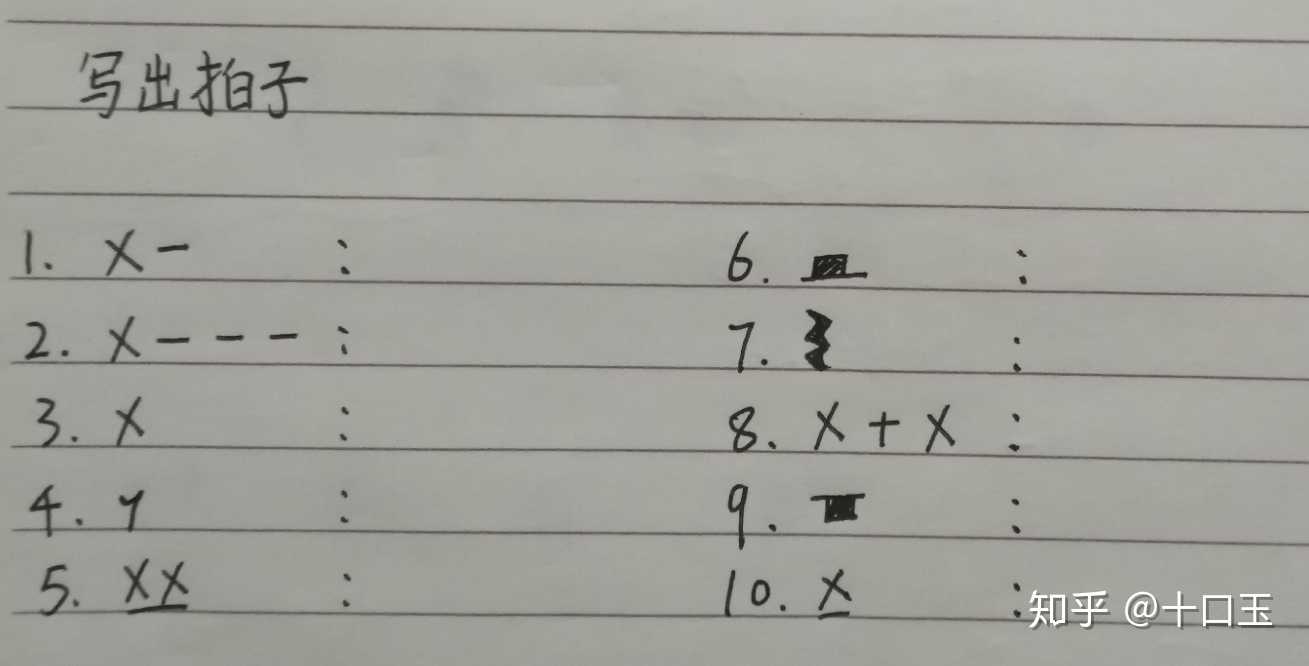 写出拍子
1. X – :
2. X – – – :
3. X :
4. y :
5. XX :
6. :
7. :
8. X + X :
9. :
10. X :
知乎 @十口玉